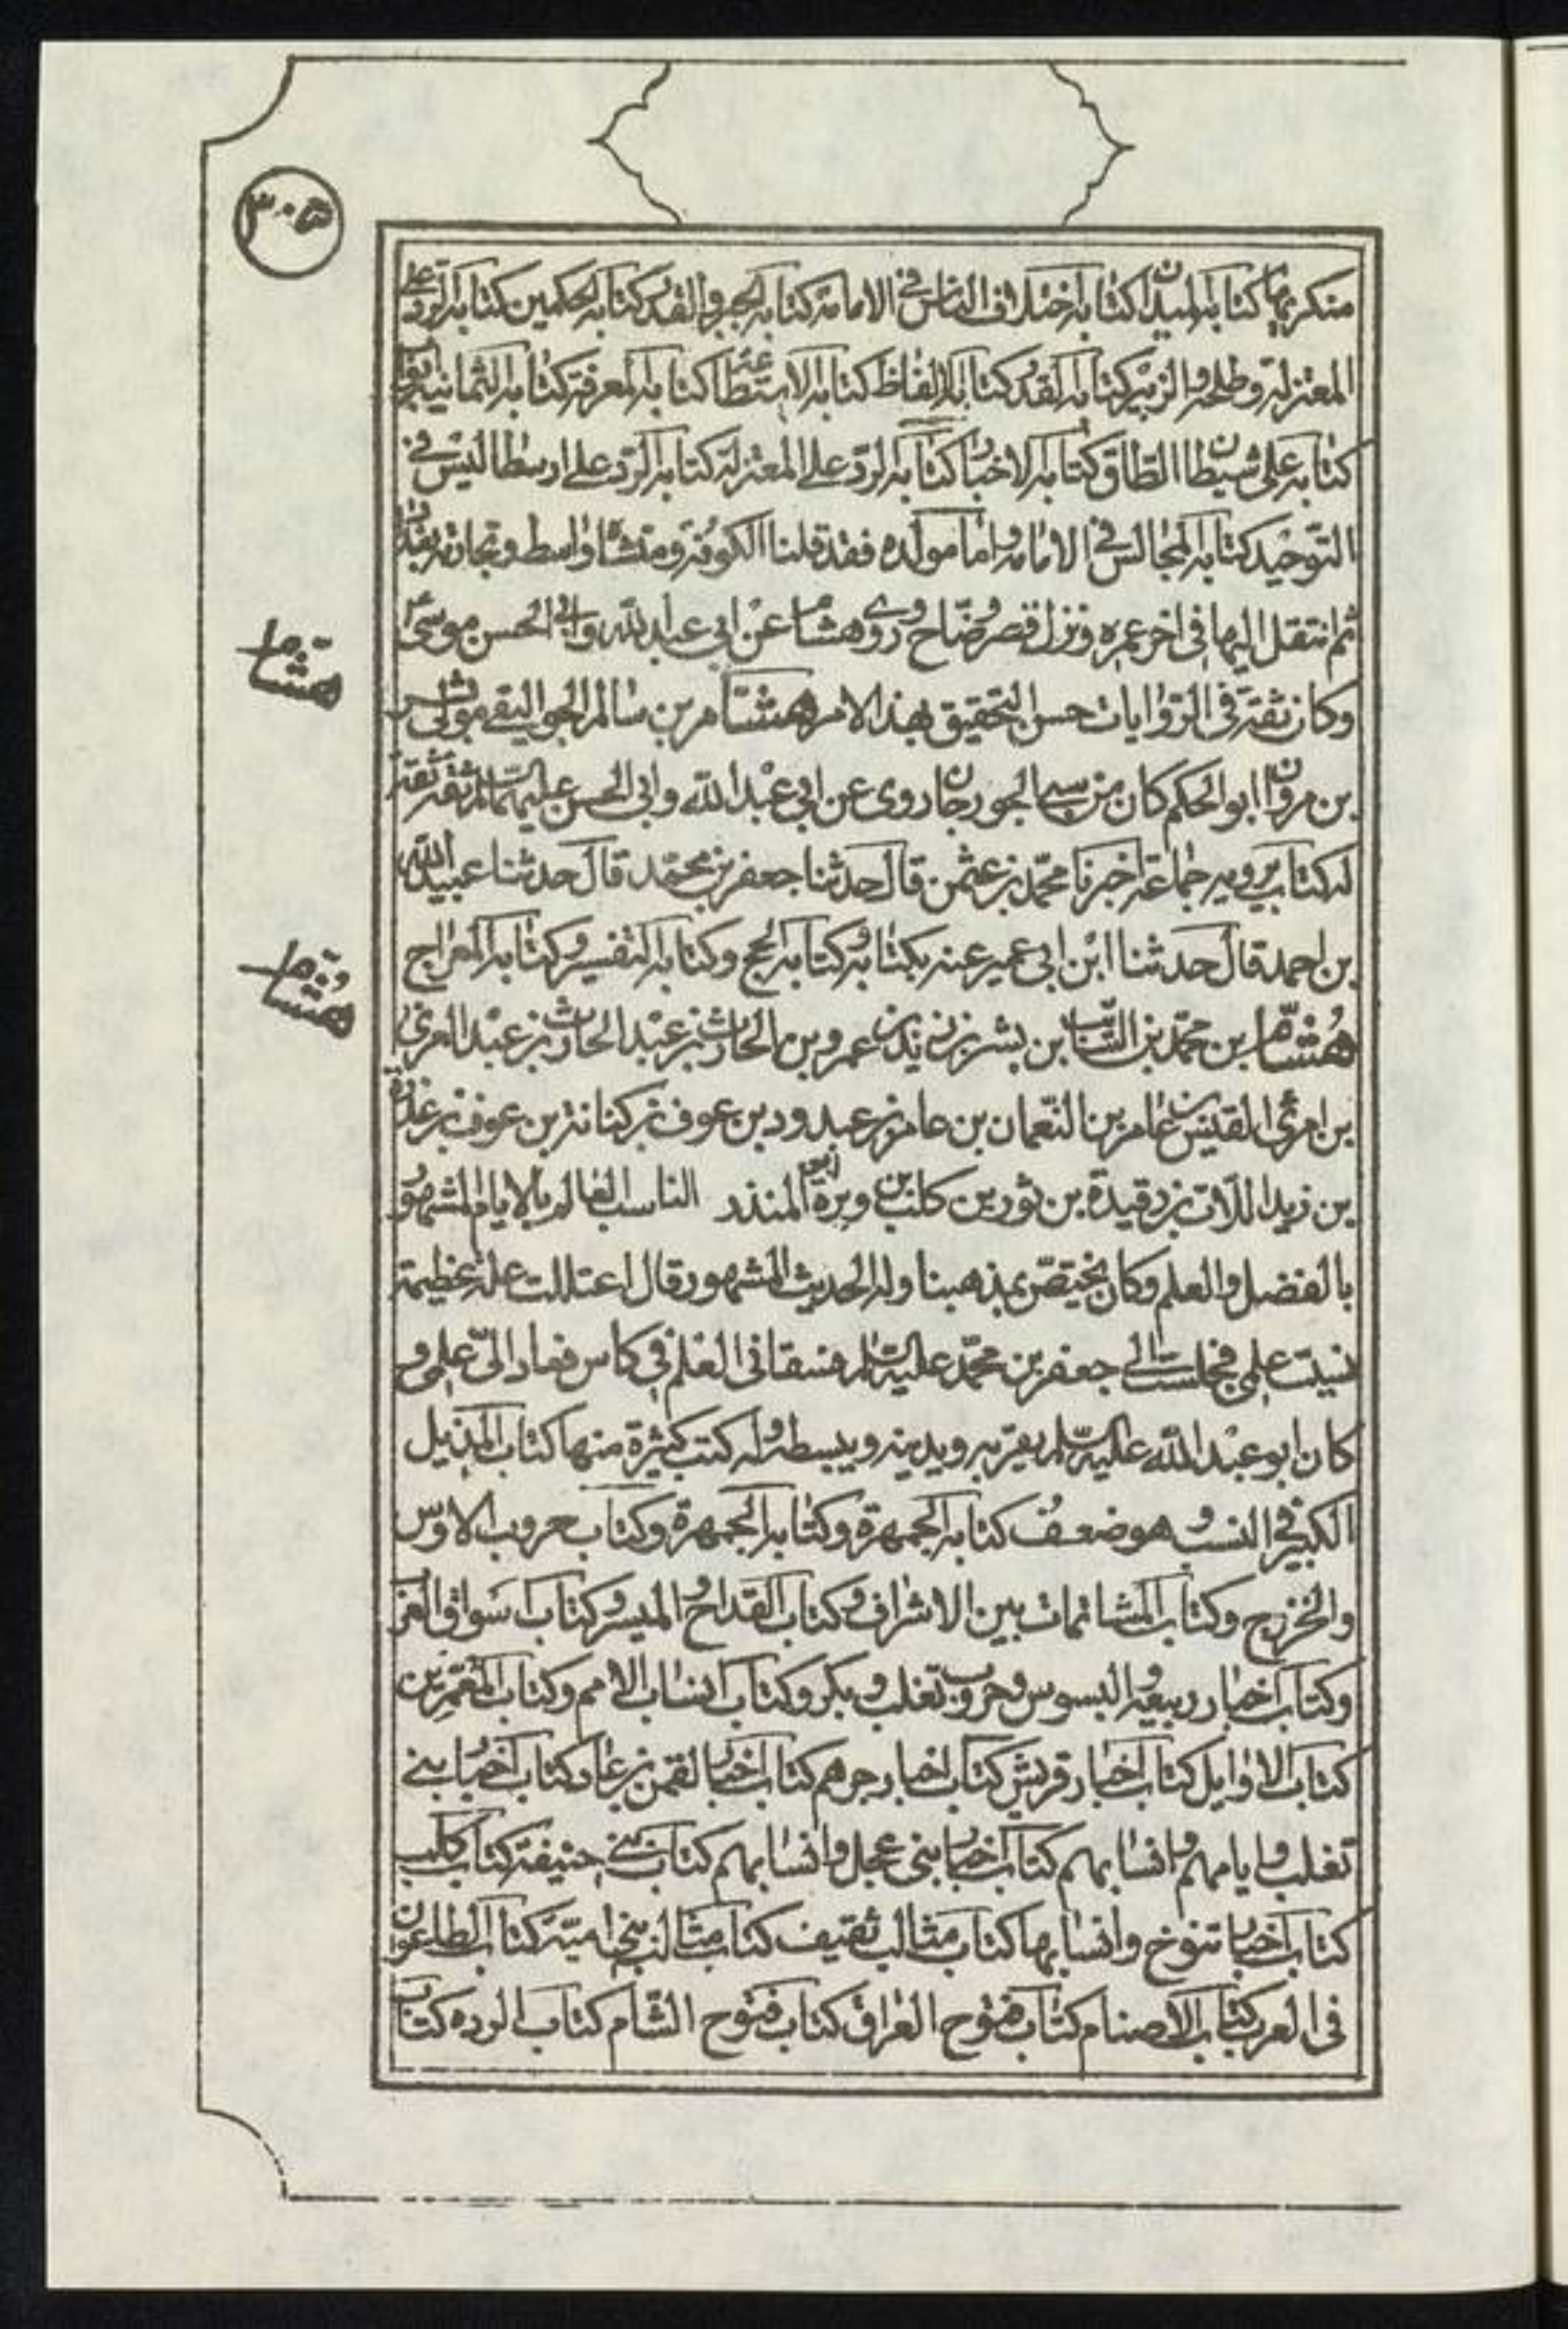 ٣٠٥
منكريها كتابه الميدان كتابه اختلاف الناس في الامامة كتابه الجبر والقدر كتابه الحكمين كتابه الرد على
المعتزلة وطلحة والزبير كتابه القدر كتابه الالفاظ كتابه الاستطاعة كتابه المعرفة كتابه الثمانية ابواب
كتابه على شيطان الطاق كتابه الاخبار كتابه الرد على المعتزلة كتابه الرد على ارسطاليس في
التوحيد كتابه المجالس في الامامة واما مولده فقد قلنا الكوفة ومنشاه واسط وتجارته بغداد
ثم انتقل اليها في اخر عمره ونزل قصر وضاح وروى هشام عن ابي عبد الله وابي الحسن موسى
هشام
وكان ثقة في الروايات حسن التحقيق بهذا الامر هشام بن سالم الجواليقي مولى بشر
بن مروان ابو الحكم كان من سبي الجوزجان روى عن ابي عبد الله وابي الحسن عليهما السلام ثقة ثقة
له كتاب يرويه جماعة اخبرنا محمد بن عثمن قال حدثنا جعفر بن محمد قال حدثنا عبيد الله
بن احمد قال حدثنا ابن ابي عمير عنه بكتابه وكتابه الحج وكتابه التفسير وكتابه المعراج
هشام
هشام بن محمد بن السائب بن بشر بن زيد بن عمرو بن الحارث بن عبد الحارث بن عبد العزى
بن امرئ القيس بن عامر بن النعمان بن عامر بن عبد ود بن عوف بن كنانة بن عوف بن عذرة
بن زيد اللات بن رقيدة بن ثور بن كلب بن وبرة ابو المنذر الناسب العالم بالايام المشهور
بالفضل والعلم وكان يختص بمذهبنا وله الحديث المشهور قال اعتللت علة عظيمة
نسيت علمي فجلست الى جعفر بن محمد عليه السلام فسقاني العلم في كاس فعاد الي علمي و
كان ابو عبد الله عليه السلام يقربه ويدنيه ويبسطه وله كتب كثيرة منها كتاب المذيل
الكبير في النسب وهو ضعف كتابه الجمهرة وكتابه الجمهرة وكتاب حروب الاوس
والخزرج وكتاب المشاتمات بين الاشراف وكتاب القداح والميسر وكتاب اسواق العرب
وكتاب اخبار ربيعة والبسوس وحروب تغلب وبكر وكتاب انساب الامم وكتاب المعمرين
كتاب الاوايل كتاب اخبار قريش كتاب اخبار جرهم كتاب اخبار لقمن بن عاد كتاب اخبار بني
تغلب وايامهم وانسابهم كتاب اخبار بني عجل وانسابهم كتاب بني حنيفة كتاب كلب
كتاب اخبار تنوخ وانسابها كتاب مثالب ثقيف كتاب مثالب بني امية كتاب الطاعون
في العرب كتاب الاصنام كتاب فتوح العراق كتاب فتوح الشام كتاب الرده كتاب